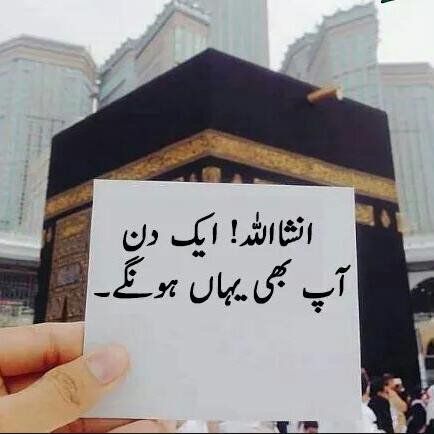 انشااللہ! ایک دن
آپ بھی یہاں ہونگے۔